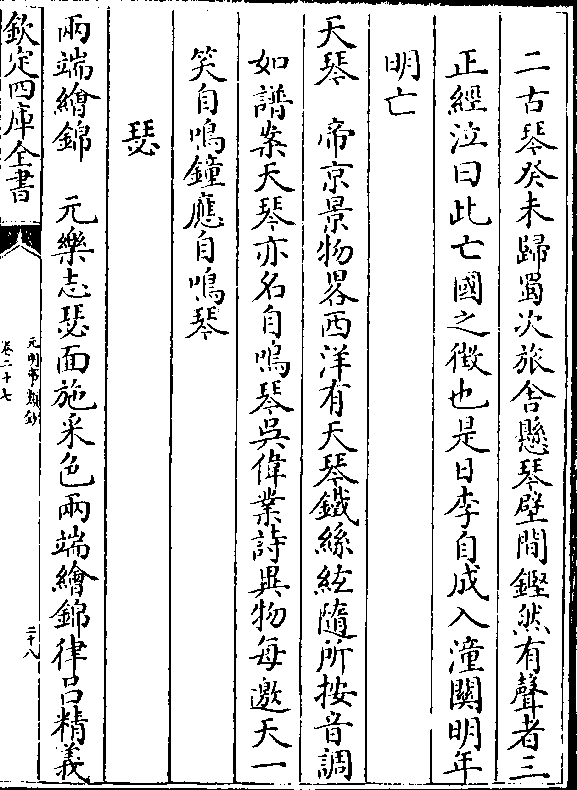 二古琴癸未歸蜀次旅舍懸琴壁間鏗然有聲者三
正經泣曰此亡國之徵也是日李自成入潼關明年
明亡
天琴　帝京景物畧西洋有天琴鐵絲絃隨所按音調
如譜案天琴亦名自鳴琴吳偉業詩異物每邀天一
笑自鳴鐘應自鳴琴
瑟
兩端繪錦　元樂志瑟面施采色兩端繪錦律呂精義
欽定四庫全書
元明事類鈔
卷二十七
二十八